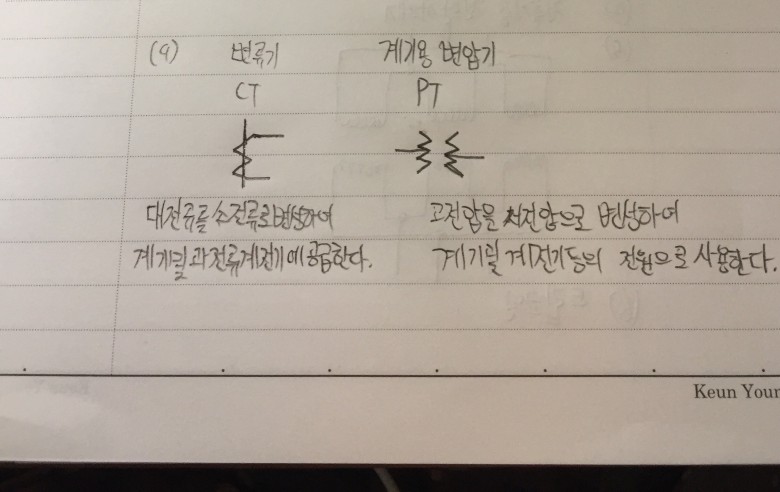 (9) 변류기 계기용 변압기
CT PT
대전류를 소전류로 변성하여 고전압을 저전압으로 변성하여
계기 및 과전류계전기에 공급한다. 계기 및 계전기등의 전원으로 사용한다.
Keun Your